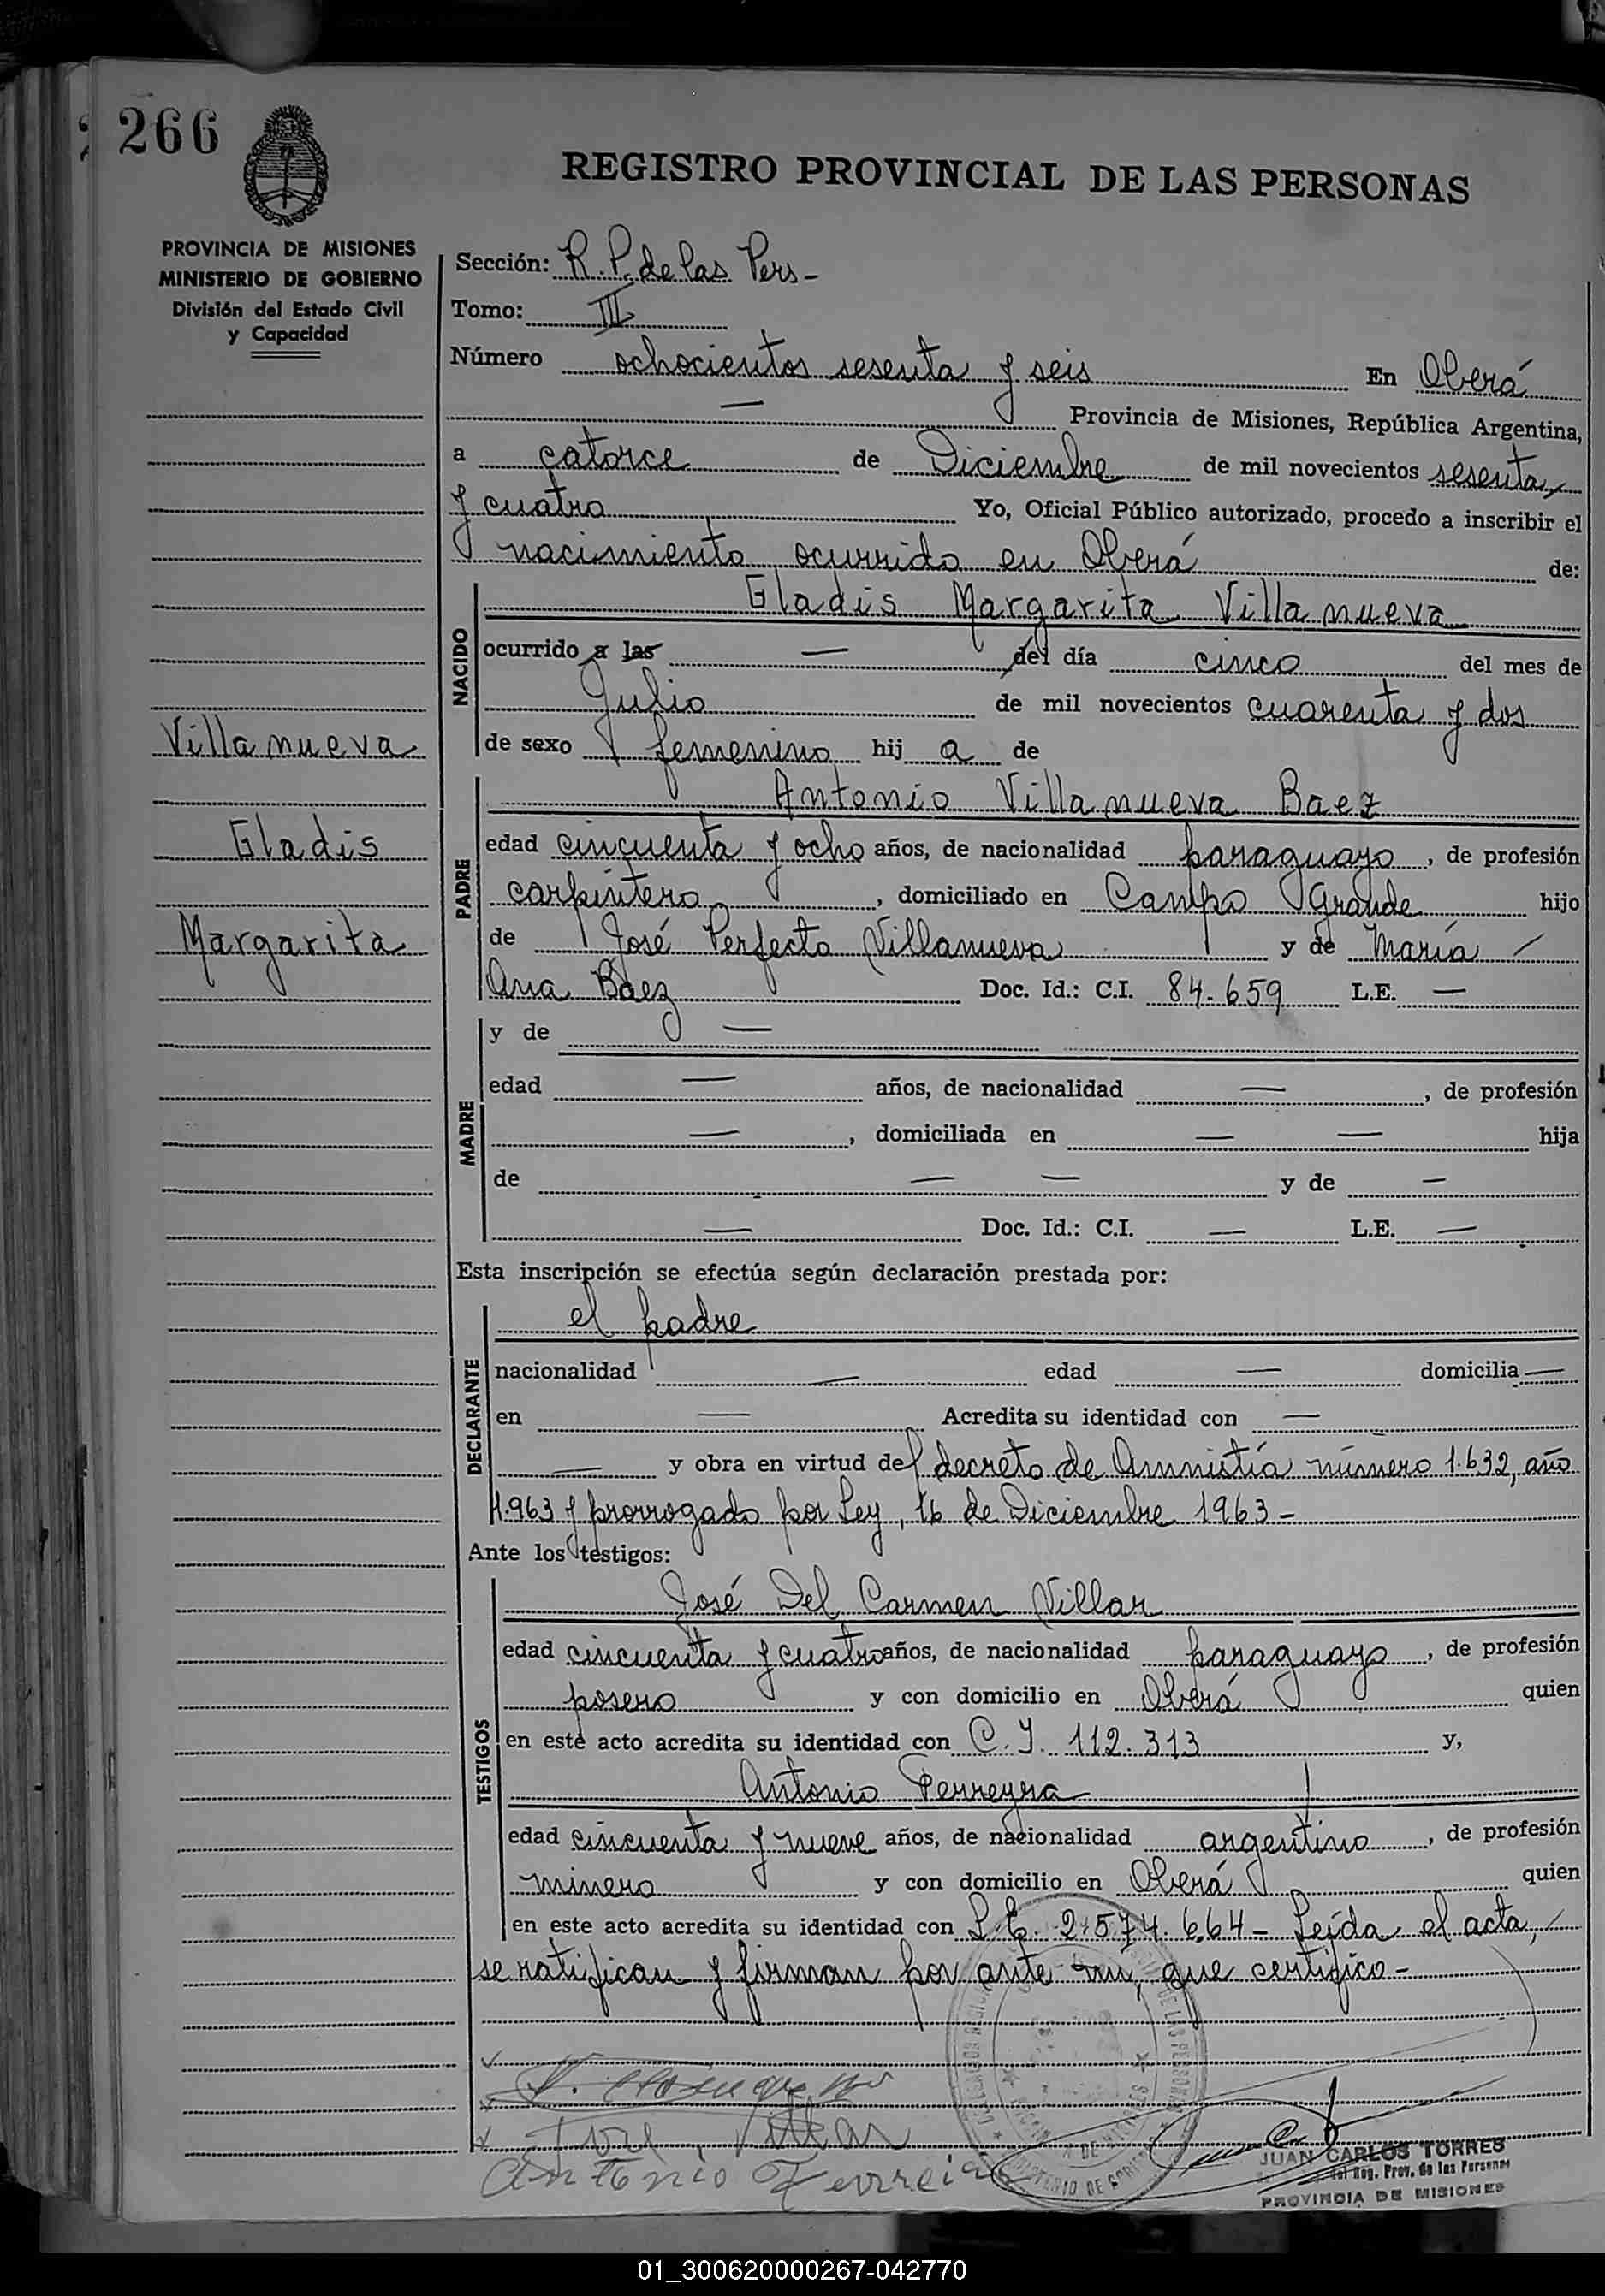 266
REGISTRO PROVINCIAL DE LAS PERSONAS
PROVINCIA DE MISIONES
MINISTERIO DE GOBIERNO
División del Estado Civil
y Capacidad
Villanueva
Gladis
Margarita
Sección: R. P. de las Pers -
Tomo: III
Número ochocientos sesenta y seis En Oberá
— Provincia de Misiones, República Argentina,
a catorce de Diciembre de mil novecientos sesenta
y cuatro Yo, Oficial Público autorizado, procedo a inscribir el
nacimiento ocurrido en Oberá de:
NACIDO
Gladis Margarita Villanueva
ocurrido a las — del día cinco del mes de
Julio de mil novecientos cuarenta y dos
de sexo femenino hij a de
PADRE
Antonio Villanueva Baez
edad cincuenta y ocho años, de nacionalidad paraguayo, de profesión
carpintero, domiciliado en Campo Grande hijo
de José Perfecto Villanueva y de María
Ana Báez Doc. Id.: C.I. 84.659 L.E. —
MADRE
y de —
edad — años, de nacionalidad —, de profesión
—, domiciliada en — — hija
de — — y de —
— Doc. Id.: C.I. — L.E. —
Esta inscripción se efectúa según declaración prestada por:
DECLARANTE
el padre
nacionalidad — edad — domicilia —
en — Acredita su identidad con —
— y obra en virtud del decreto de Amnistía número 1.632, año
1.963 y prorrogado por Ley, 16 de Diciembre 1963 -
Ante los testigos:
TESTIGOS
José Del Carmen Villar
edad cincuenta y cuatro años, de nacionalidad paraguayo, de profesión
posero y con domicilio en Oberá quien
en este acto acredita su identidad con C. I. 112.313 y,
Antonio Ferreyra
edad cincuenta y nueve años, de nacionalidad argentino, de profesión
minero y con domicilio en Oberá quien
en este acto acredita su identidad con L. E. 2.574.664 - Leída el acta,
se ratifican y firman por ante mi, que certifico -
José Villar
Antonio Ferreia
JUAN CARLOS TORRES
Reg. Prov. de las Personas
PROVINCIA DE MISIONES
01_300620000267-042770